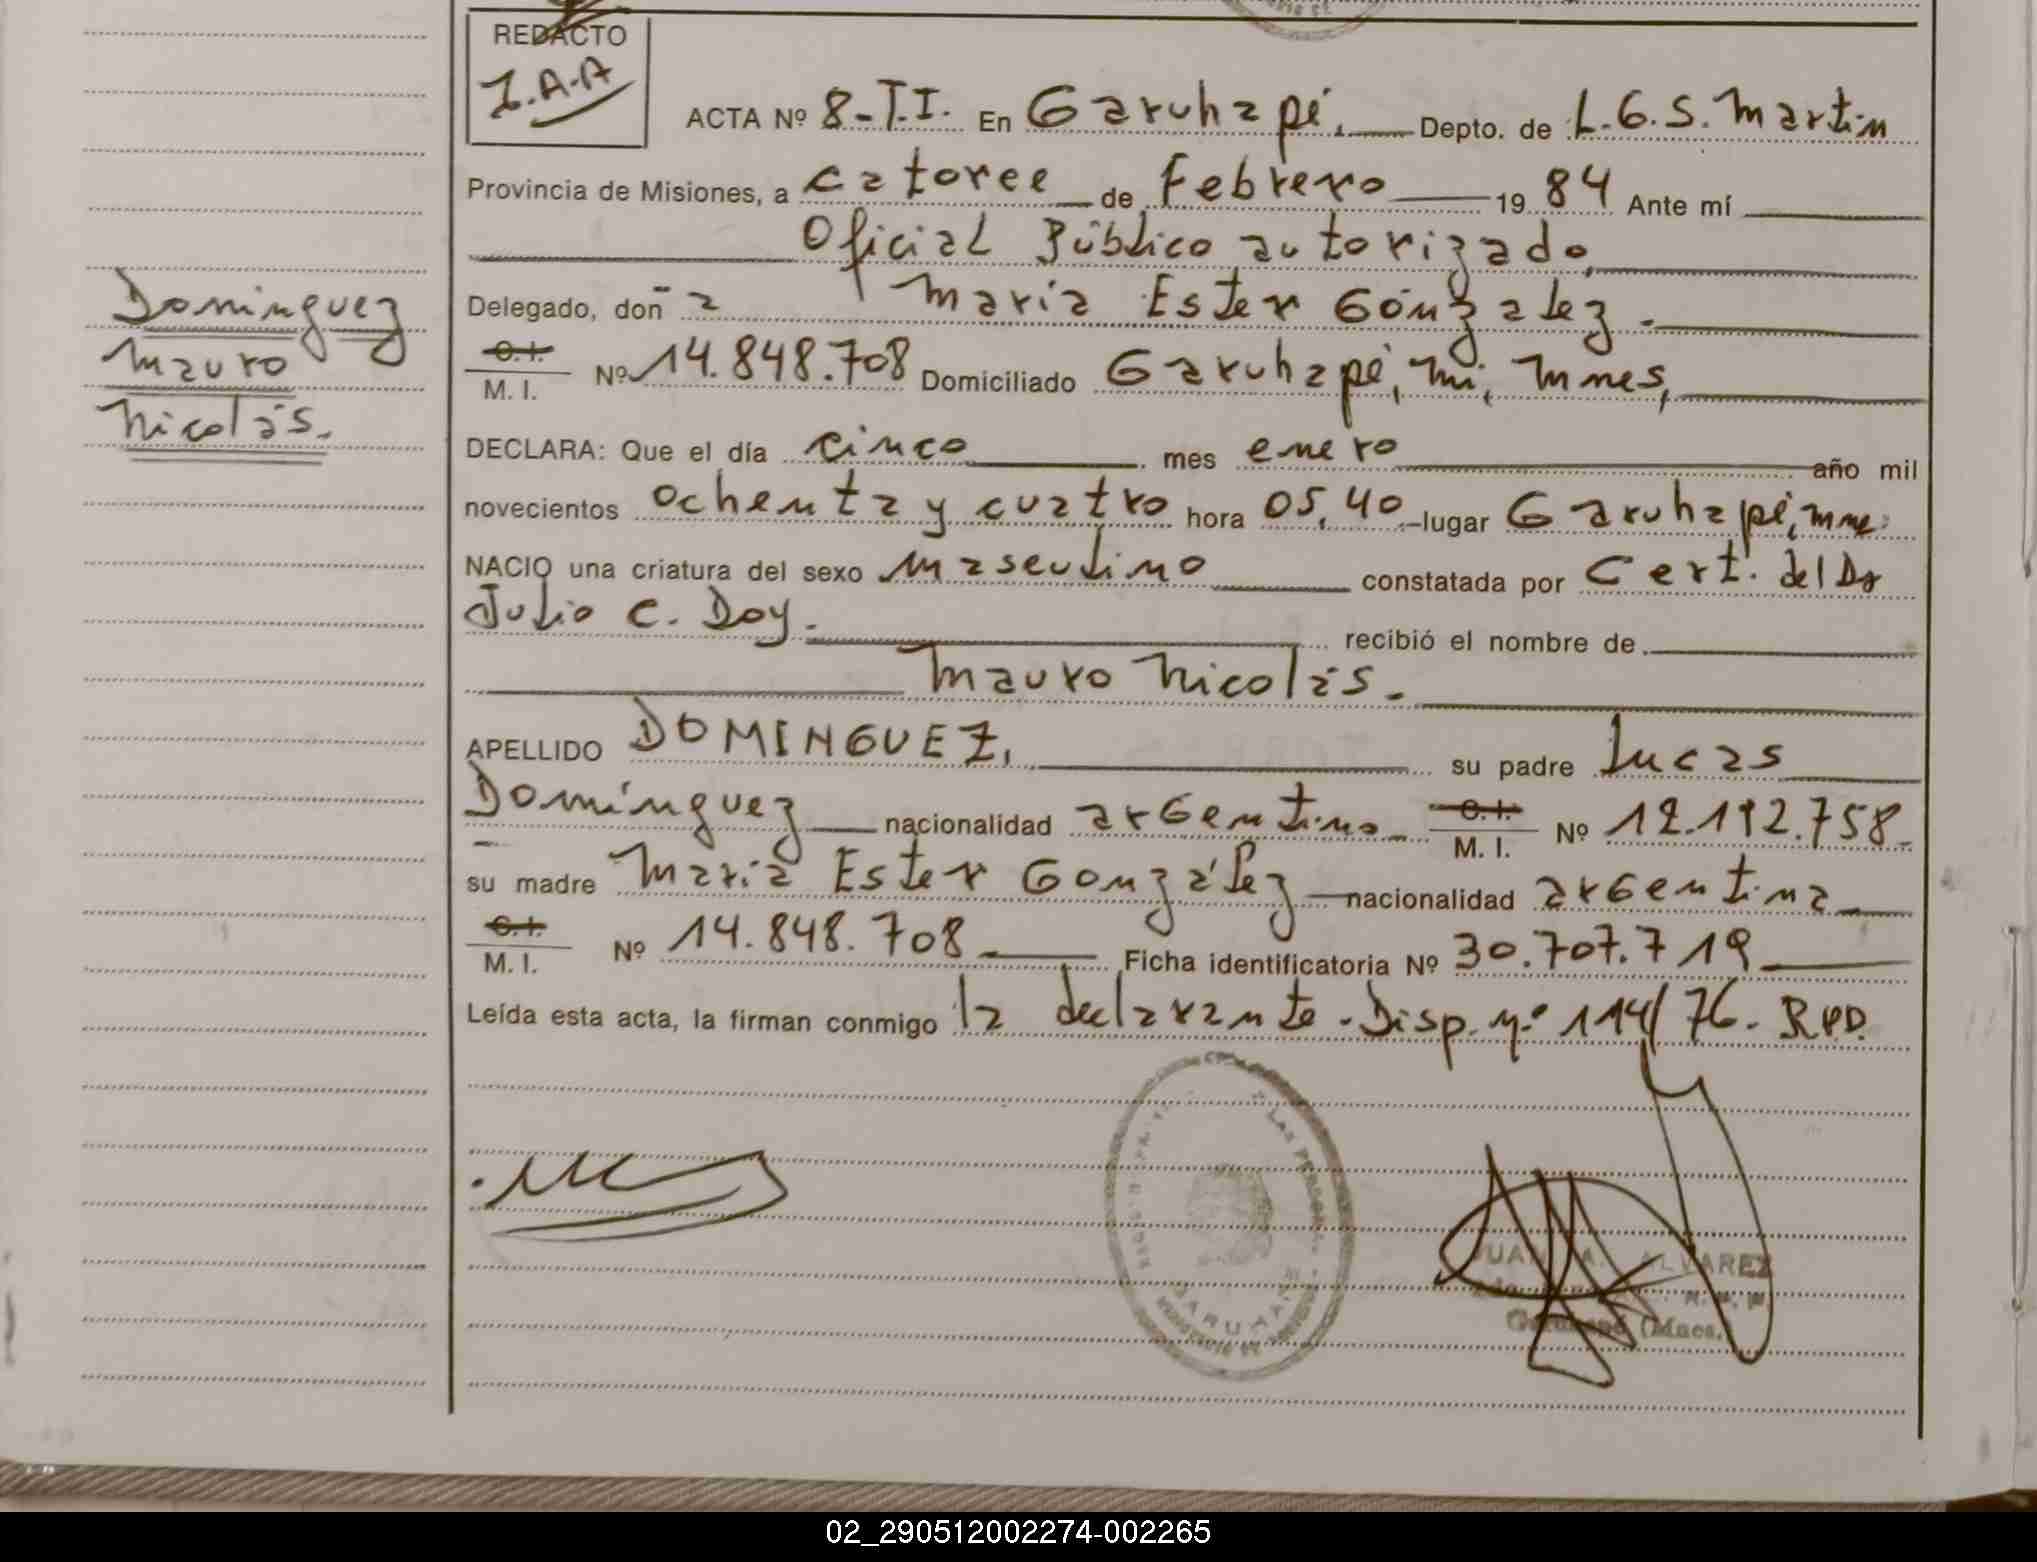 REDACTO
J.A.A
ACTA Nº 8-T.I. En Garuhapé, Depto. de L.G.S. Martin
Provincia de Misiones, a catorce de Febrero 1984 Ante mí
Oficial Público autorizado,
Delegado, doña María Ester Gónzalez.
C.I. M. I. Nº 14.848.708 Domiciliado Garuhapé, Mi, Mnes,
DECLARA: Que el día cinco mes enero año mil
novecientos ochenta y cuatro hora 05,40 lugar Garuhapé, Mnes
NACIO una criatura del sexo masculino constatada por Cert. del Dr
Julio C. Doy. recibió el nombre de
Mauro Nicolás.
APELLIDO DOMINGUEZ, su padre Lucas
Domínguez nacionalidad argentino C.I. M. I. Nº 12.192.758
su madre María Ester González nacionalidad argentina
C.I. M. I. Nº 14.848.708 Ficha identificatoria Nº 30.707.719
Leída esta acta, la firman conmigo la declarante. Disp. nº 114/76. R.P.D.
Dominguez
Mauro
Nicolás.
LAS PERSONAS
GARUHAPE
JUAN A. ALVAREZ
Garuhapé (Mnes.)
02_290512002274-002265